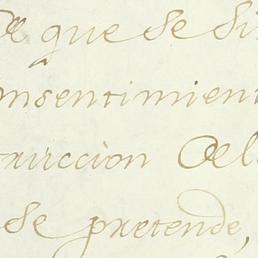 que se si
nsentimient
ricciòn del
se pretende,